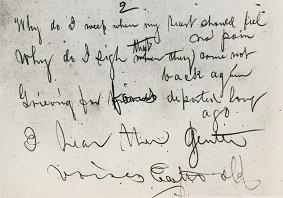 2
Why do I weep when my heart should feel
no pain
Why do I sigh that they come not
back again
Grieving for departed long
ago
I hear their gentle
voices old